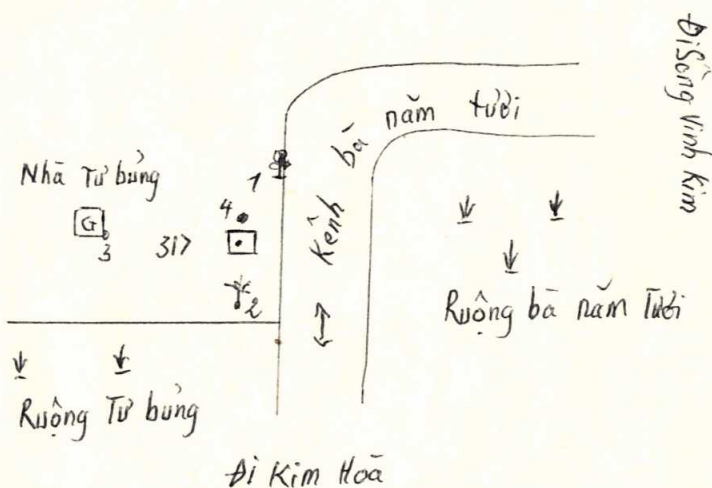 Đi Sông Vĩnh Kim
Kênh bà năm tưới
Nhà Tư bủng
1
4
G
3
317
2
Ruộng bà năm Tưới
Ruộng Tư bủng
Đi Kim Hoà